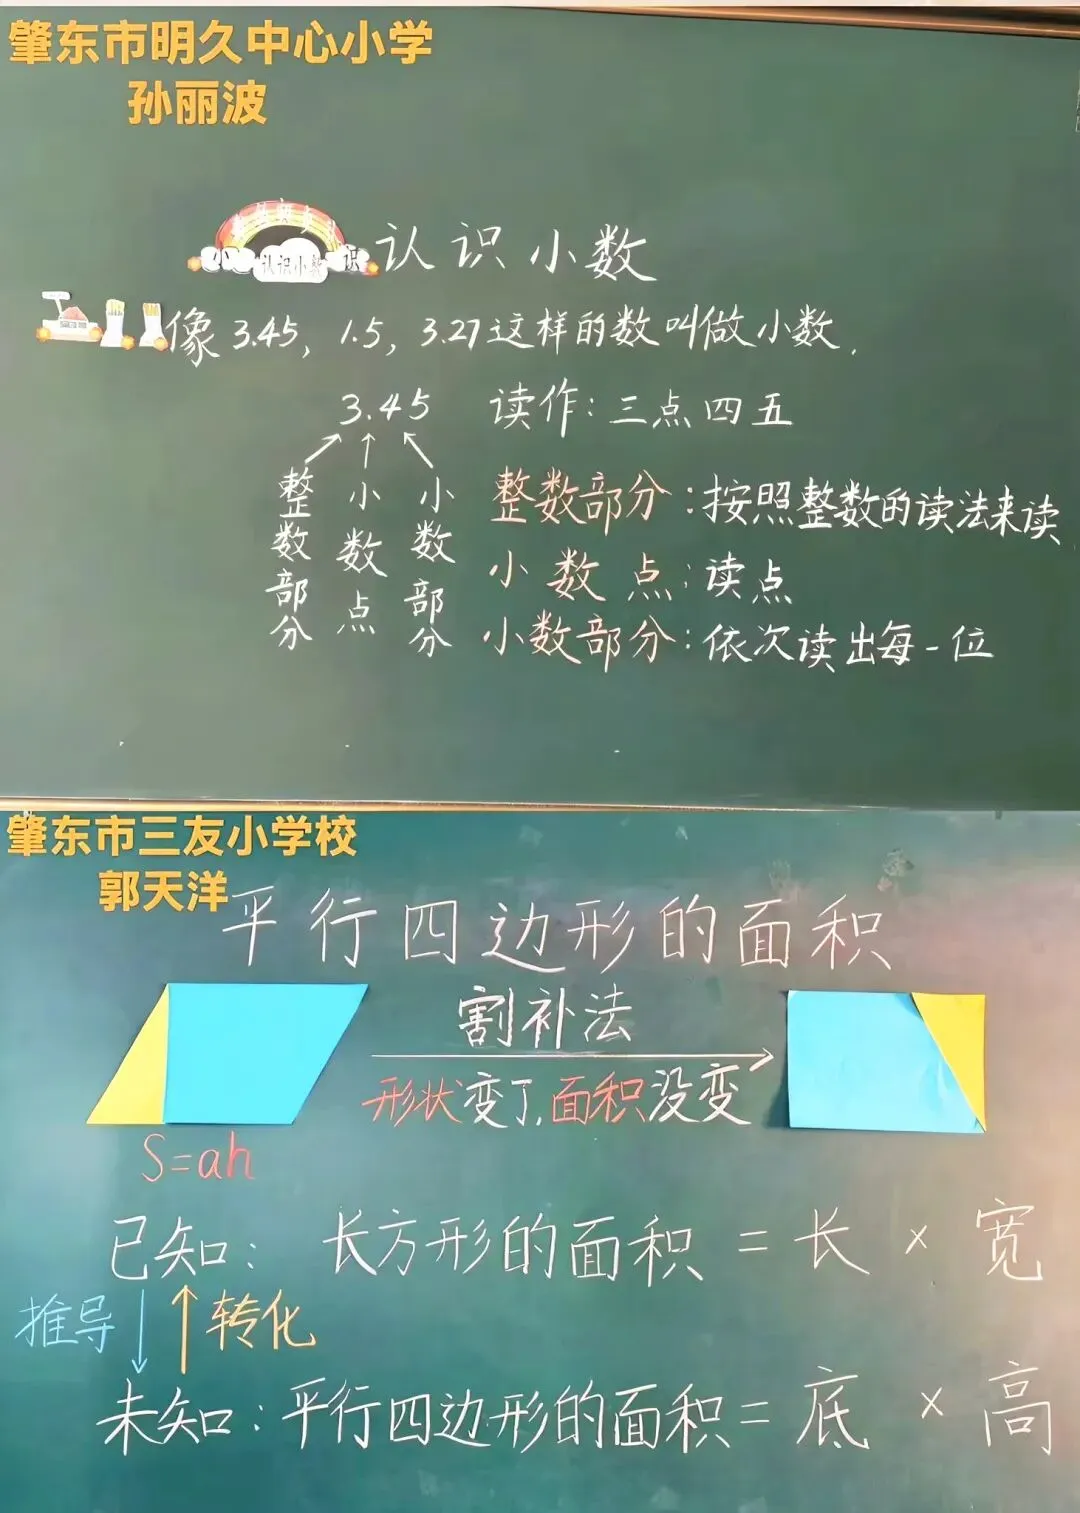 肇东市明久中心小学
孙丽波
认识小数
认识小数
像3.45，1.5，3.27这样的数叫做小数.
3.45 读作：三点四五
整数部分 小数点 小数部分
整数部分：按照整数的读法来读
小数点：读点
小数部分：依次读出每一位
肇东市三友小学校
郭天洋
平行四边形的面积
割补法
形状变了,面积没变
S=ah
已知：长方形的面积=长×宽
推导 转化
未知：平行四边形的面积=底×高